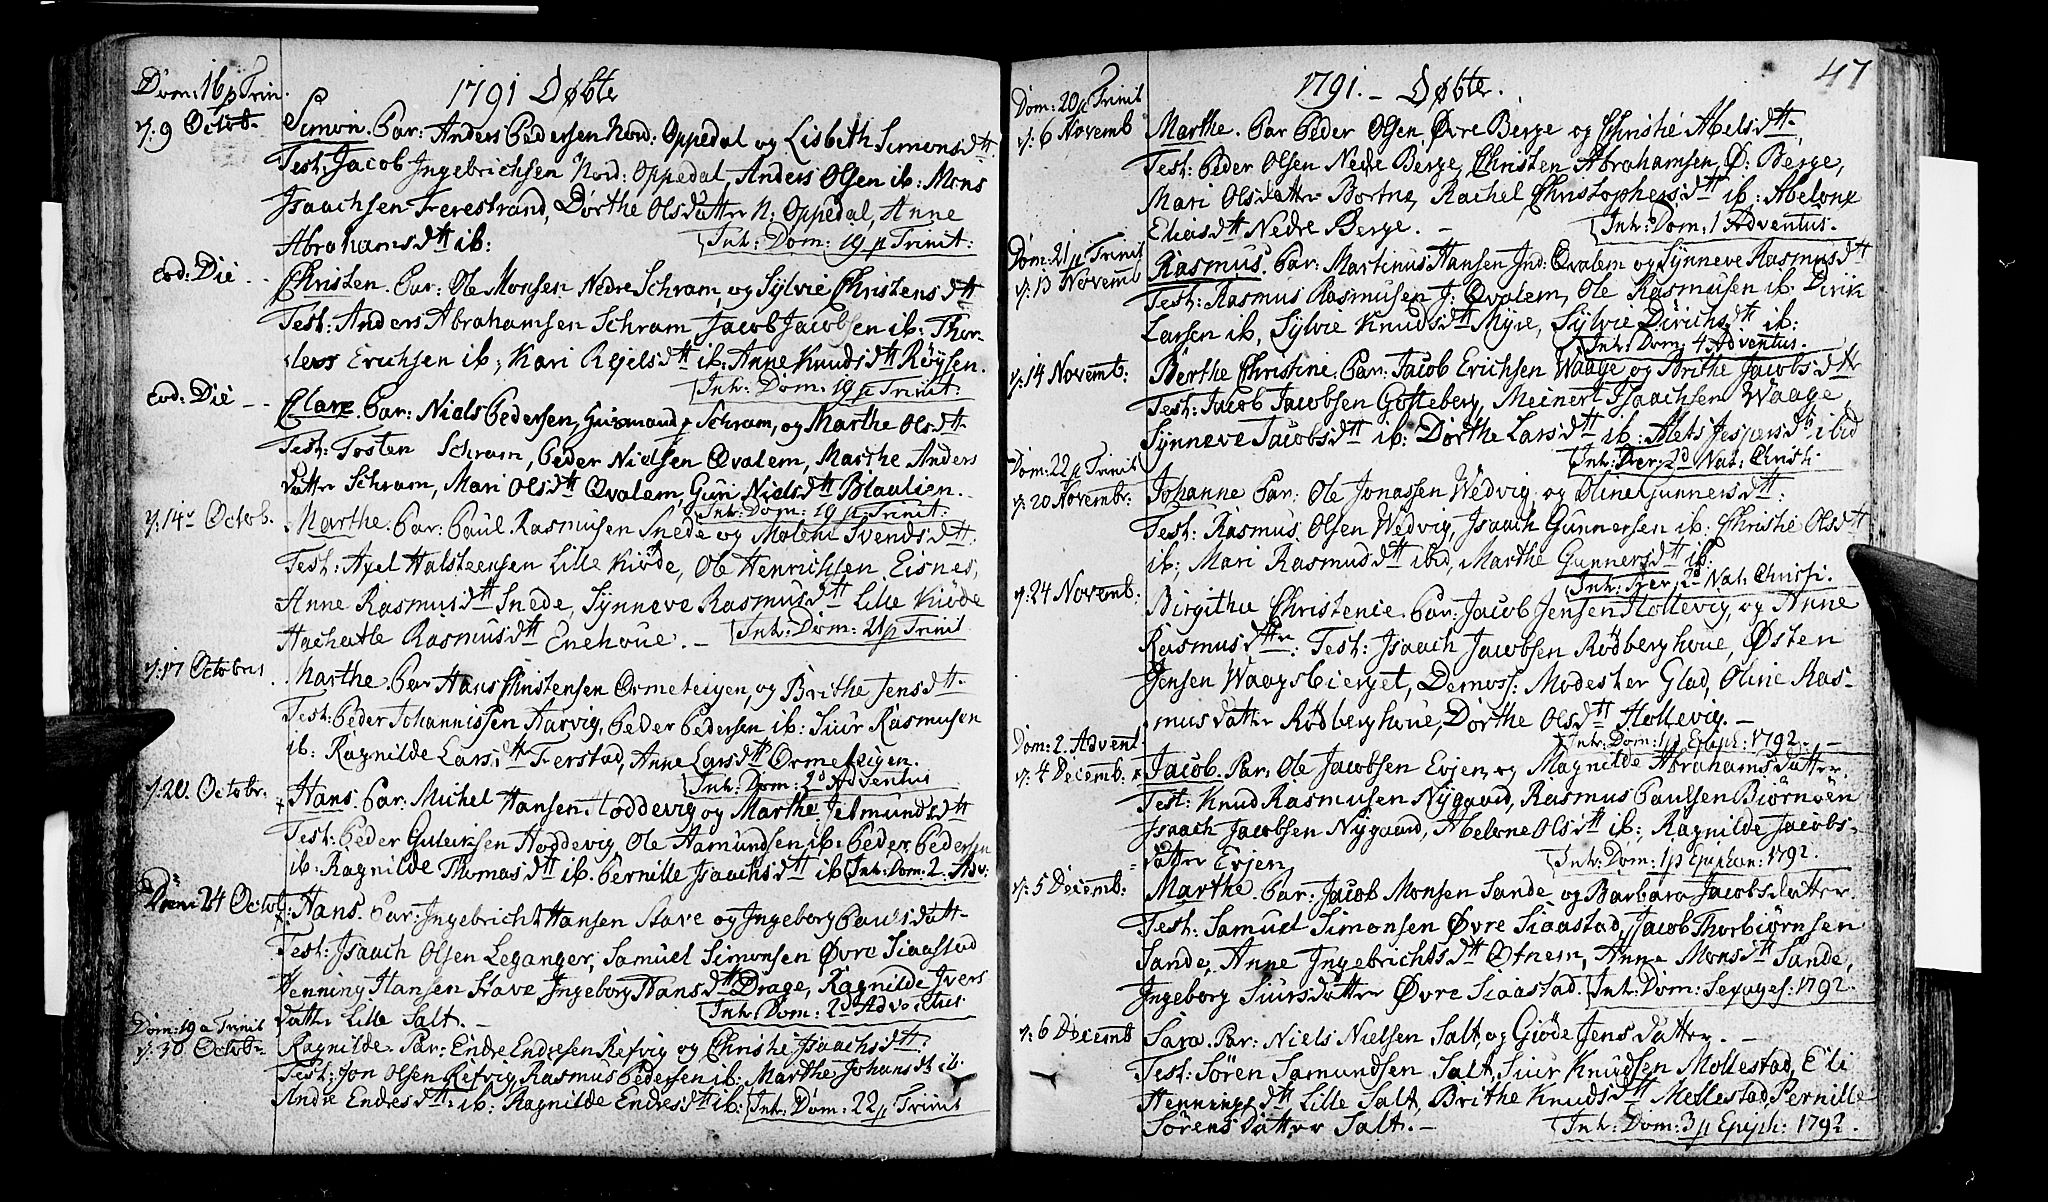 1791 Døbte
Dom: 16 p Trin.
d: 9 Octob.
Simon. Par: Anders Pedersen Nord: Oppedal og Lisbeth Simonsdtt.
Test: Jacob Ingebrichsen Nord: Oppedal, Anders Olsen ib: Mons
Isaachsen Ferestrand, Dorthe Olsdatter N: Oppedal, Anne
Abrahamsdtt ib: Int: Dom: 19 p Trinit:
eod: Die
Christen. Par: Ole Monsen Nedre Schram, og Sylvie Christensdtt
Test: Anders Abrahamsen Schram, Jacob Jacobsen ib: Thor-
levs Erichsen ib; Kari Rejelsdtt ib: Anne Knudsdtt Røysen.
Int: Dom: 19 p Trinit:
eod: Die
Clare. Par: Niels Pedersen, Huusmand p Schram, og Marthe Olsdtt.
Test: Tosten Schram, Peder Nielsen Qvalem, Marthe Anders
datter Schram, Mari Olsdtt Qvalem, Guri Nielsdtt Blaulien.
Int: Dom: 19 p Trinit:
d: 14 Octob.
Marthe. Par: Paul Rasmusen Snede og Malene Svendsdtt.
Test: Axel Halsteensen Lille Kiøde, Ole Henrichsen Eisnes,
Anne Rasmusdtt Snede, Synneve Rasmusdtt Lille Kiøde
Rasmusdtt Enehoue. Int: Dom: 21 p Trinit
d: 17 Octobr
Marthe. Par Hans Christensen Ormeteigen, og Brithe Jensdtt.
Test: Peder Johannissen Aarvig, Peder Pedersen ib: Siur Rasmusen
ib: Ragnilde Larsdtt Frerstad, Anne Larsdtt Ormeteigen.
Int: Dom: 2d Adventus
d: 20. Octobr.
Hans. Par: Michel Hansen Hoddevig og Marthe Jetmundsdtt
Test: Peder Guleiksen Hoddevig, Ole Aamundsen ib: Peder Pedersen
ib: Ragnilde Thomasdtt ib. Pernille Isaachsdtt ib Int: Dom: 2. Adv:
24 Octob:
Hans. Par: Ingebricht Hansen Stave og Ingeborg Paulsdatt.
Test: Isaach Olsen Leganger, Samuel Simonsen Øvre Siaastad
Henning Hansen Stave Ingeborg Hansdtt Drage, Ragnilde Ivers
datter Lille Salt. Int: Dom: 2d Adventus
Dom: 19 p Trinit
d: 30 Octobr.
Ragnilde. Par: Endre Endresen Refvig og Christie Isaachsdtt.
Test: Jon Olsen Refvig Rasmus Pedersen ib: Marthe Johansdtt ib.
Endresdtt: ib: Ragnilde Endresdtt ib: Int: Dom: 22 p Trinit
1791. Døbte. 47
Dom: 20 p Trinit
d: 6 Novemb
Marthe. Par Peder Olsen Øvre Berge og Christie Abelsdtt.
Test: Peder Olsen Nedre Berge, Christen Abrahamsen Ø: Berge,
Mari Olsdatter Bortne, Rachel Christophersdtt ib: Abelone
Eliasdtt Nedre Berge. Int: Dom: 1 Adventus.
Dom: 21 p Trinit
d: 13 Novemb
Rasmus. Par: Martinus Hansen Ind: Qvalem og Synneve Rasmusdtt
Test: Rasmus Rasmusen J: Qvalem, Ole Rasmusen ib. Dirik
Larsen ib, Sylvie Knudsdtt Myre, Sylvie Dirichsdtt ib:
Int: Dom: 4 Adventus.
d: 14 Novemb:
Berthe Christine. Par: Jacob Erichsen Waage og Brithe Jacobsdtt.
Test: Jacob Jacobsen Gosteberg, Meinert Isaachsen Waage,
Synneve Jacobsdtt ib: Dorthe Larsdtt ib: Alets Jespersdtt ibid
Int: Fer: 2d Nat: Christi
Dom: 22 p Trinit
d: 20 Novembr:
Johanne Par: Ole Jonassen Wedvig, og Oline Gunnersdtt:
Test: Rasmus Olsen Wedvig, Isaach Gunnersen ib: Christie Olsdtt
ib; Mari Rasmusdtt ibid, Marthe Gunnersdtt ib:
Int: Fer. 2d Nat: Christi.
d: 24 Novemb.
Birgithe Christenie. Par: Jacob Jensen Hollevig, og Anne
Rasmusdtter: Test: Isaach Jacobsen Rødberghoue, Østen
Jensen Waagsbierget, Demoss: Modesther Glad, Oline Ras-
musdatter Rødberghoue, Dorthe Olsdtt Hollevig.
Int: Dom: 1 p Epiph: 1792.
Dom: 2. Advent
d: 4 Decemb.
Jacob. Par: Ole Jacobsen Evjen, og Magnilde Abrahamsdatter.
Test: Knud Rasmusen Nygaard, Rasmus Paulsen Biørnøen
Isaach Jacobsen Nygaard, Abelone Olsdtt ib: Ragnilde Jacobs-
datter Evjen, Int: Dom: 1 p Epiphan: 1792.
d: 5 Decemb:
Marthe. Par: Jacob Monsen Sande og Barbara Jacobsdatter.
Test: Samuel Simonsen Øvre Siaastad, Jacob Thorbiørnsen
Sande, Anne Ingebrichtsdtt Otnem, Anne Monsdtt Sande,
Ingeborg Siursdatter Øvre Siaastad Int: Dom: Sexages: 1792.
d: 6 Decemb
Sara. Par: Niels Nielsen Salt, og Giøde Jensdatter.
Test: Sören Samundsen Salt, Siur Knudsen Mollestad, Eli
Henningsdtt Lille Salt, Brithe Knudsdtt Mollestad Pernille
Sörensdatter Salt. Int: Dom: 3 p Epiph: 1792.